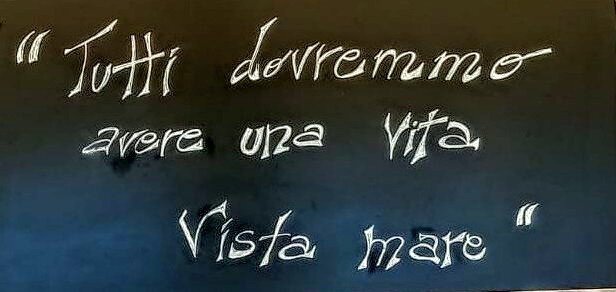 "Tutti dovremmo
avere una vita
Vista mare"